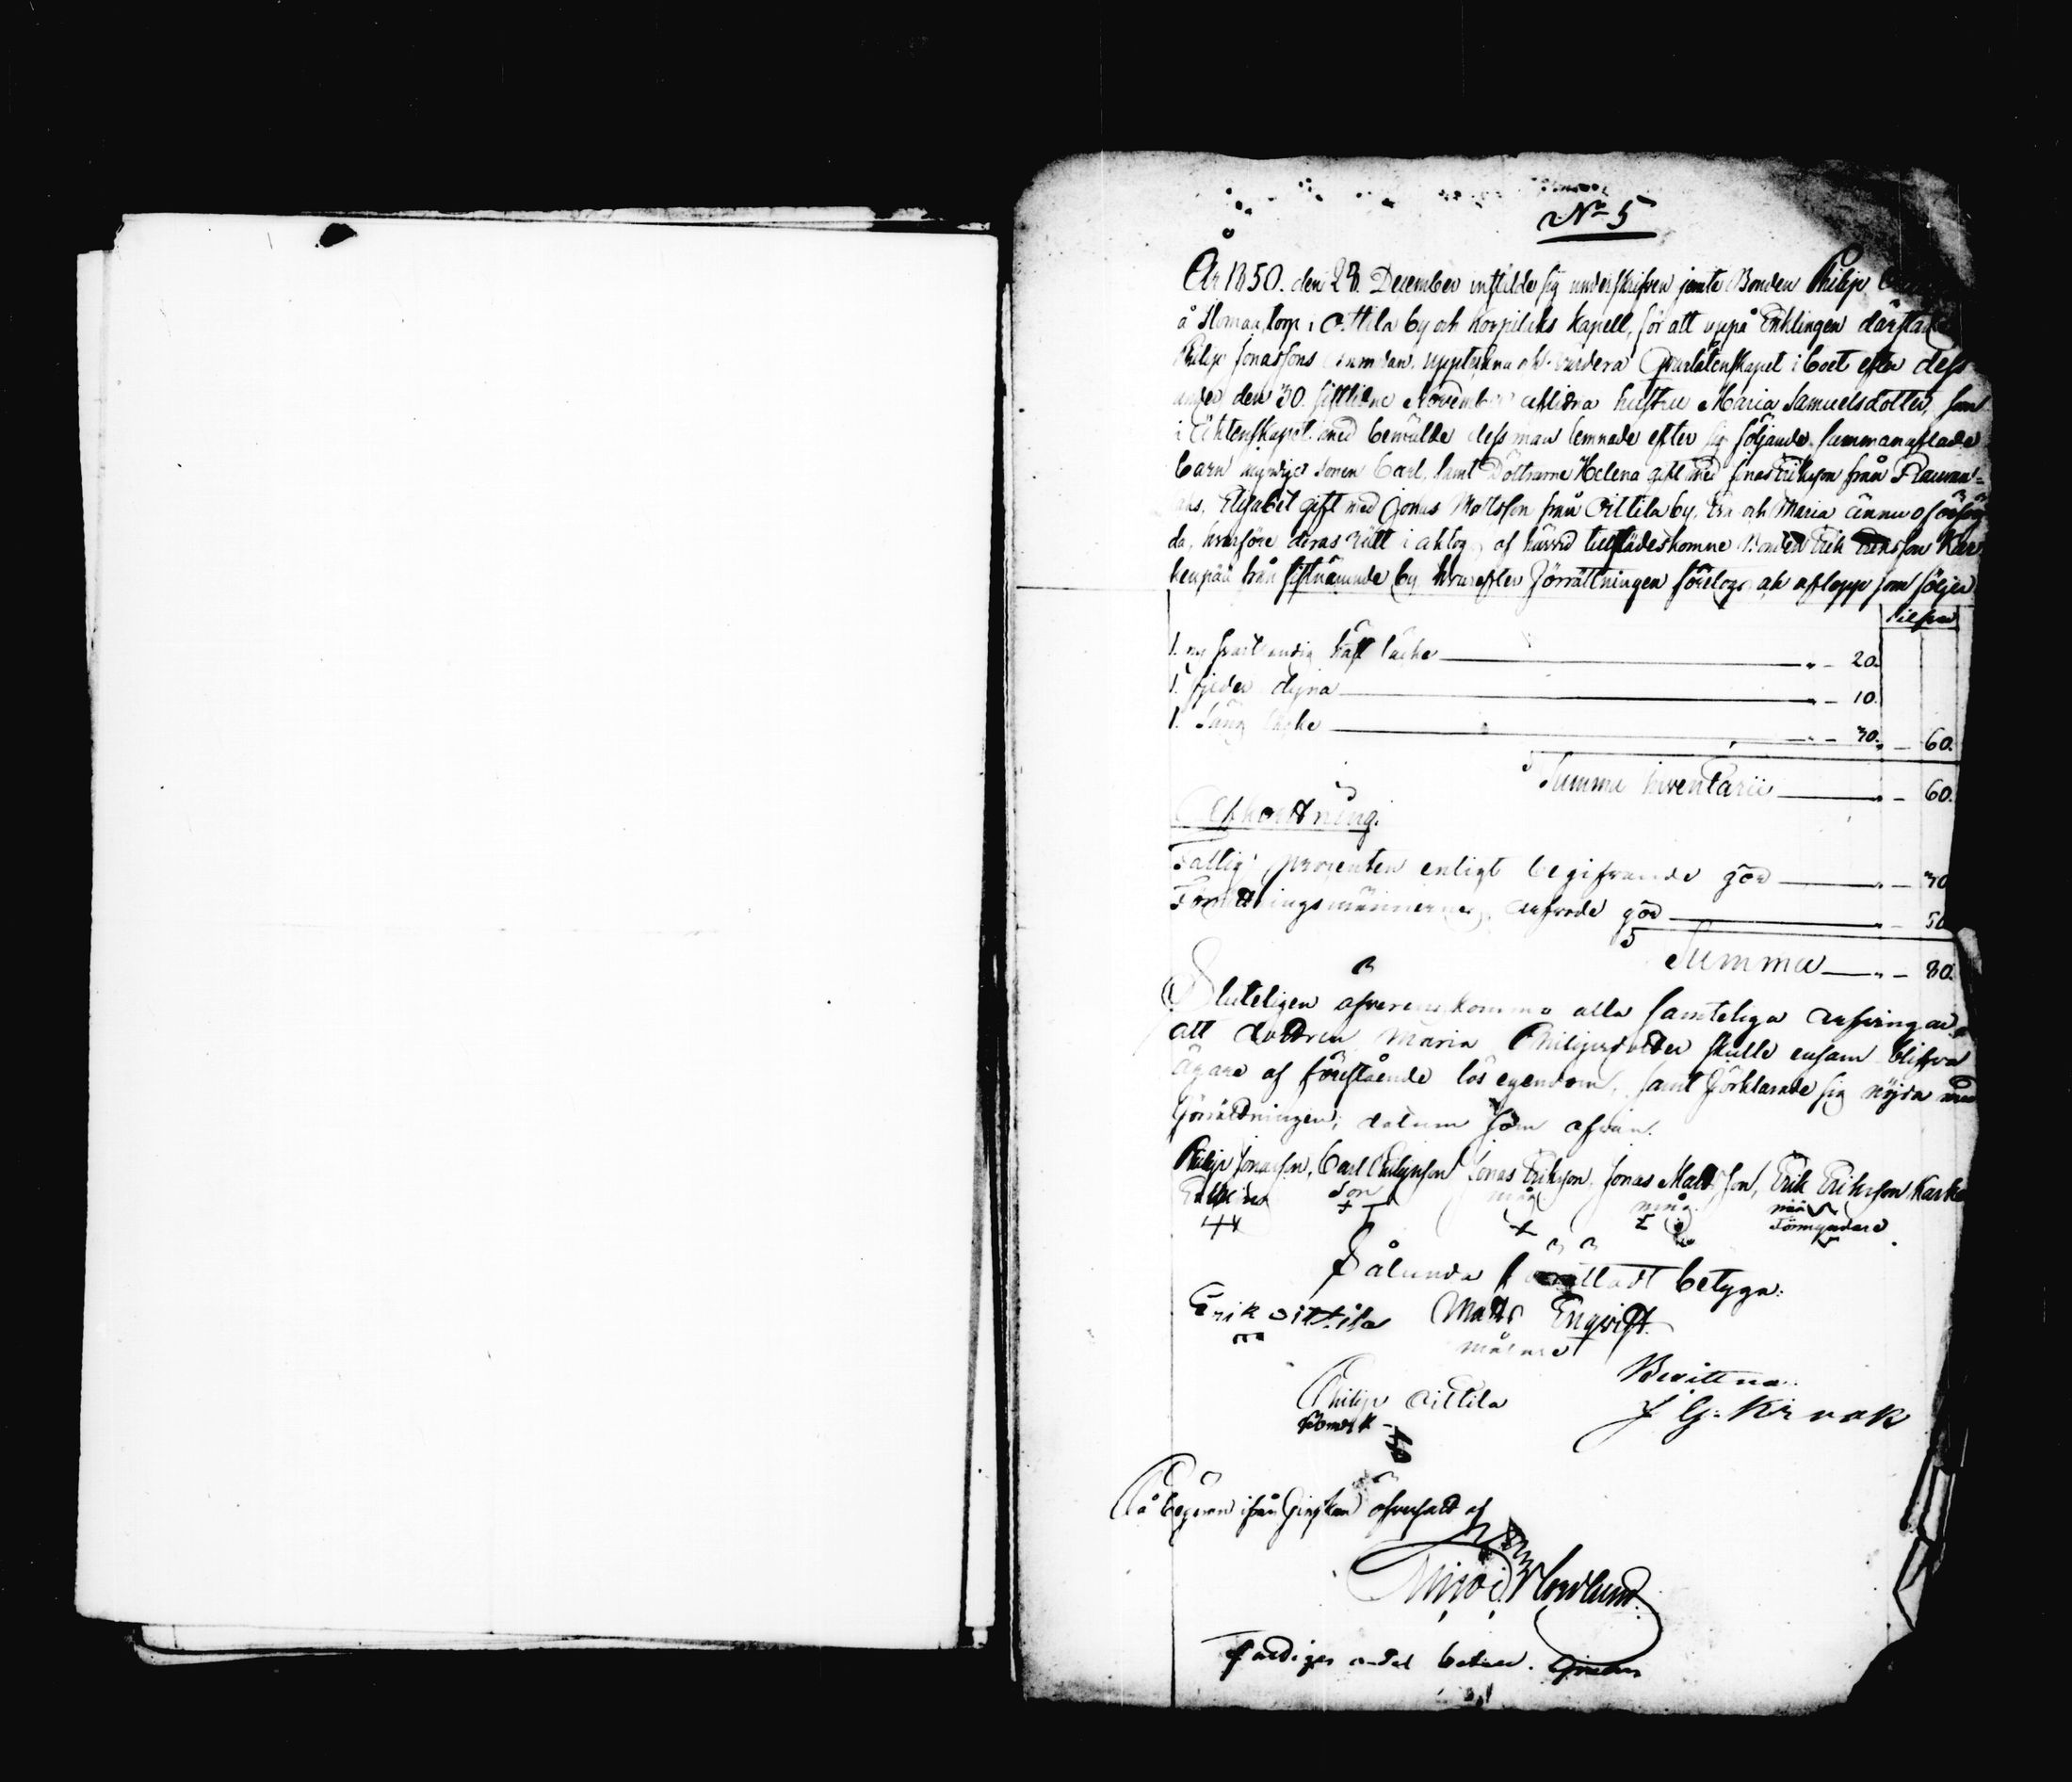 No 5
År 1850. den 28. December instälde sig underskrifven jemte Bonden Philip
å torp i Vittila by och Korpilaks Kapell, för att uppå Enklingen därstädes
Philip Jonassons anmodan, uppteckna och värdera qvarlåtenskapet i boet efter dess
under den 30. sistledne November aflidna hustru Maria Samuelsdotter, som
i Ächtenskapet med bemälde dess man lemnade efter sig följande sammanaflade
barn myndige sonen Carl, samt Döttrarne Helena gift med Jonas Erikson från
Elisabet gift med Jonas Mattsson från Vittila by, Eva och Maria ännu oförsörg
da, hvarföre deras rätt i aktog af härvid tillstädeskomne Bonden Erik Eriksson Kar
från sistnämnde by hvarefter förrättningen företogs och aflopp som följer
Silfver
1. ny täcke " - 20.
1. fjeder dyna " - 10.
1. Säng täcke " - 30. " - 60.
Summa inventarii " - 60.
Afkortning.
Fattig procenten enligt begifvande gör " - 30
Förrättningsmännernes arfvode gör " - 50
Summa " - 80.
Sluteligen öfverenskommo alla samteliga arfvingar
att dottren Maria Philipsdotter skulle ensam blifva
ägare af förestående lös egendom, samt förklarade sig nöjda med
förrättningen; datum som ofvan.
Philip Jonasson, Carl Philipsson Jonas Erikson, Jonas Mattsson, Erik Eriksson Karke
Enkling son måg måg
Förmyndare
Sålunda förrättadt betyga:
Erik Vittila Matts Enqvist
målare
Philip Vittila Bevittna:
bomärk J G: Krook
På begäran ifrån finskan öfversatt af
Nordlund
Fattiges andel betalt.